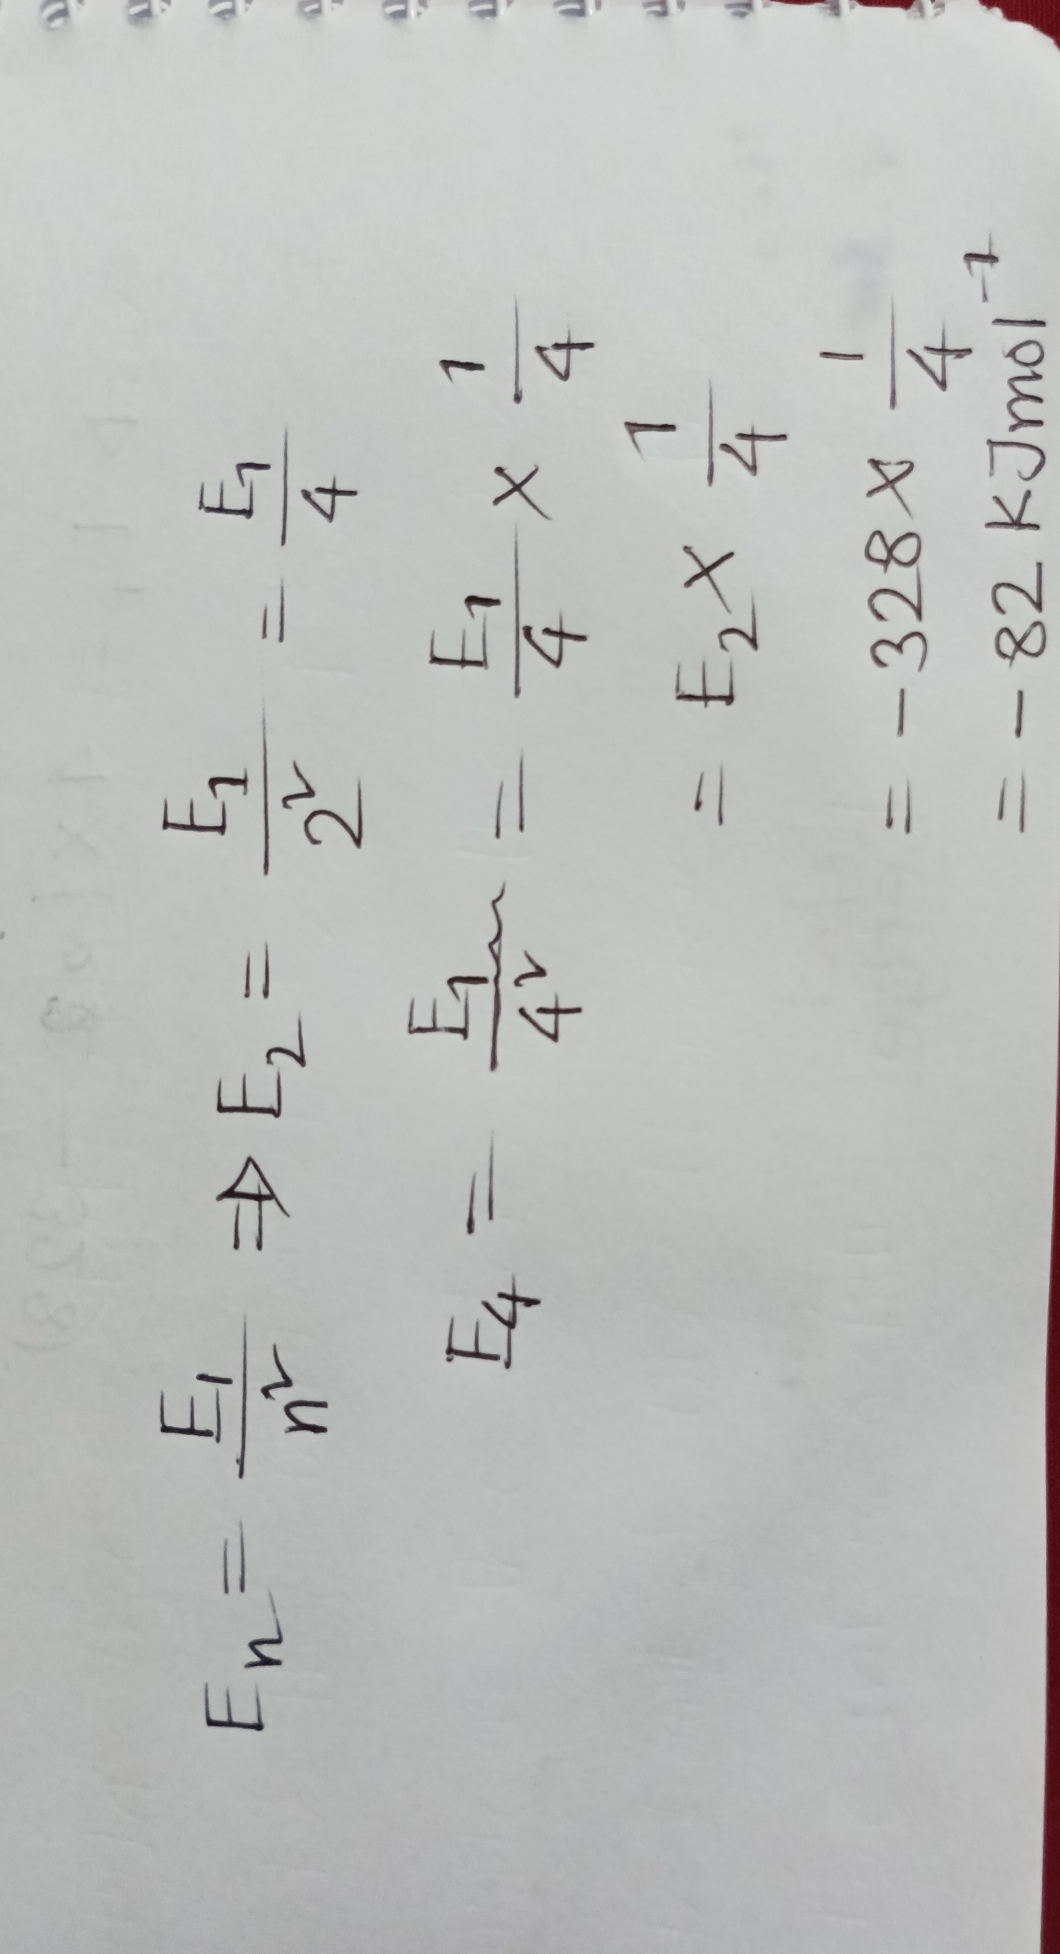 En = E₁/n² ⇒ E₂ = E₁/2² = E₁/4
E₄ = E₁/4² = E₁/4 × 1/4
= E₂ × 1/4
= -328 × 1/4
= -82 KJmol⁻¹